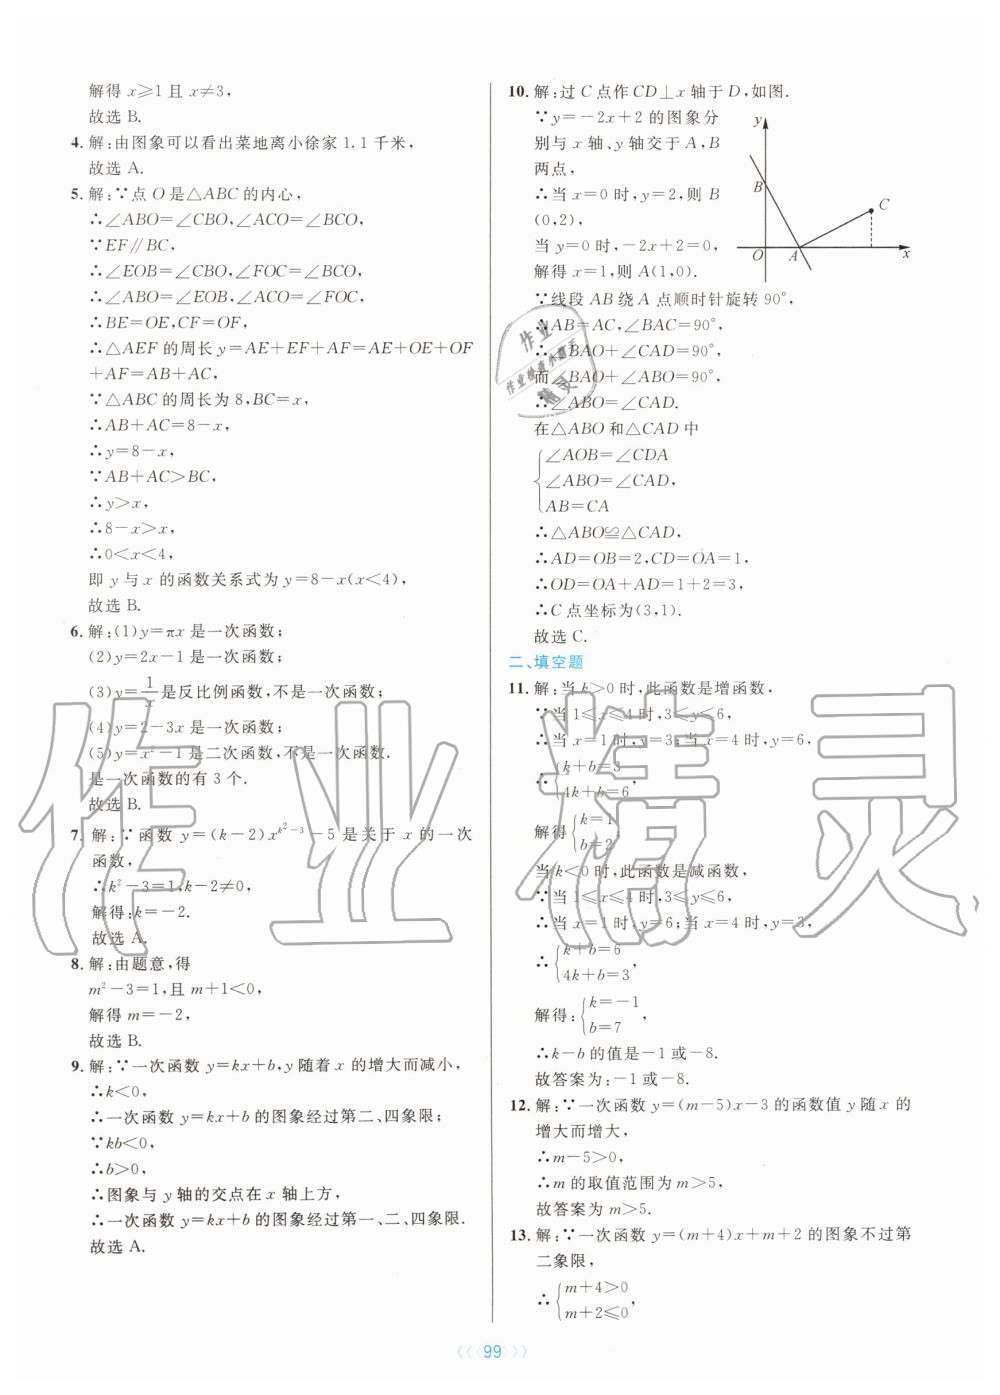 解得 x≥1 且 x≠3,
故选 B.
4. 解:由图象可以看出菜地离小徐家 1.1 千米,
故选 A.
5. 解:∵点 O 是△ABC 的内心,
∴∠ABO=∠CBO,∠ACO=∠BCO,
∵EF∥BC,
∴∠EOB=∠CBO,∠FOC=∠BCO,
∴∠ABO=∠EOB,∠ACO=∠FOC,
∴BE=OE,CF=OF,
∴△AEF 的周长 y=AE+EF+AF=AE+OE+OF
+AF=AB+AC,
∵△ABC 的周长为 8,BC=x,
∴AB+AC=8-x,
∴y=8-x,
∵AB+AC>BC,
∴y>x,
∴8-x>x,
∴0<x<4,
即 y 与 x 的函数关系式为 y=8-x(x<4),
故选 B.
6. 解:(1)y=πx 是一次函数;
(2)y=2x-1 是一次函数;
(3)y=1/x 是反比例函数,不是一次函数;
(4)y=2-3x 是一次函数;
(5)y=x²-1 是二次函数,不是一次函数.
是一次函数的有 3 个.
故选 B.
7. 解:∵函数 y=(k-2)x^{k²-3}-5 是关于 x 的一次
函数,
∴k²-3=1,k-2≠0,
解得:k=-2.
故选 A.
8. 解:由题意,得
m²-3=1,且 m+1<0,
解得 m=-2,
故选 B.
9. 解:∵一次函数 y=kx+b,y 随着 x 的增大而减小,
∴k<0,
∴一次函数 y=kx+b 的图象经过第二、四象限;
∵kb<0,
∴b>0,
∴图象与 y 轴的交点在 x 轴上方,
∴一次函数 y=kx+b 的图象经过第一、二、四象限.
故选 A.
10. 解:过 C 点作 CD⊥x 轴于 D,如图.
∵y=-2x+2 的图象分
别与 x 轴、y 轴交于 A,B
两点,
∴当 x=0 时,y=2,则 B
(0,2),
当 y=0 时,-2x+2=0,
解得 x=1,则 A(1,0).
y
B
C
O
A
x
∵线段 AB 绕 A 点顺时针旋转 90°,
∴AB=AC,∠BAC=90°,
∴∠BAO+∠CAD=90°,
而∠BAO+∠ABO=90°,
∴∠ABO=∠CAD.
在△ABO 和△CAD 中
{∠AOB=∠CDA
∠ABO=∠CAD,
AB=CA
∴△ABO≌△CAD,
∴AD=OB=2,CD=OA=1,
∴OD=OA+AD=1+2=3,
∴C 点坐标为(3,1).
故选 C.
二、填空题
11. 解:当 k>0 时,此函数是增函数,
∵当 1≤x≤4 时,3≤y≤6,
∴当 x=1 时,y=3;当 x=4 时,y=6,
∴{k+b=3
4k+b=6,
解得{k=1
b=2;
当 k<0 时,此函数是减函数,
∵当 1≤x≤4 时,3≤y≤6,
∴当 x=1 时,y=6;当 x=4 时,y=3,
∴{k+b=6
4k+b=3,
解得:{k=-1
b=7,
∴k-b 的值是-1 或-8.
故答案为:-1 或-8.
12. 解:∵一次函数 y=(m-5)x-3 的函数值 y 随 x 的
增大而增大,
∴m-5>0,
∴m 的取值范围为 m>5,
故答案为 m>5.
13. 解:∵一次函数 y=(m+4)x+m+2 的图象不过第
二象限,
∴{m+4>0
m+2≤0,
99
作业精灵
作业
作业检查小帮手
精灵